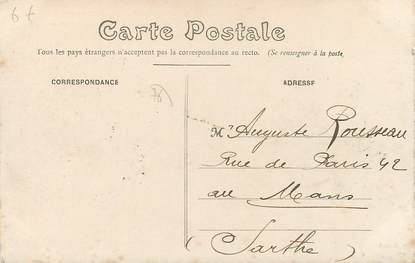 6f
Carte Postale
Tous les pays étrangers n'acceptent pas la correspondance au recto. (Se renseigner à la poste)
CORRESPONDANCE
ADRESSE
Mr Auguste Rousseau
Rue de Paris 42
au Mans
(Sarthe)